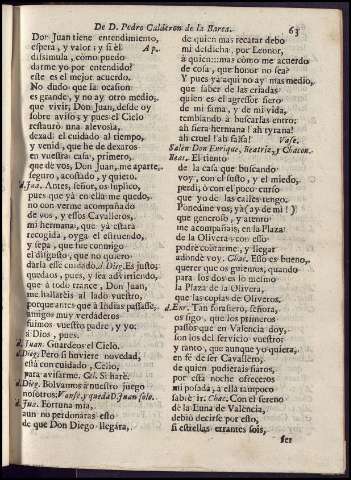 De D. Pedro Calderon de la Barca.
63
Don Juan tiene entendimiento,
espera, y valor; y si èl Ap.
dissimula, cómo puedo
darme yo por entendido?
este es el mejor acuerdo.
No dudo que la ocasion
es grande, y no ay otro medio;
que vivir, Don Juan, desde oy
sobre aviso; y pues el Cielo
restaurò una alevosia,
dexad el cuidado al tiempo,
y venid, que he de dexaros
en vuestra casa, primero,
que de vos, Don Juan, me aparte,
seguro, acostado, y quieto.
d. Jua. Antes, señor, os suplico,
pues que yà en ella me quedo,
no con verme acompañado
de vos, y essos Cavalleros,
mi hermana, que yà estarà
recogida, oyga el estruendo,
y sepa, que fue conmigo
el disgusto, que no quiero
darla esse cuidado. d. Dieg. Es justo;
quedaos, pues, y sea advirtiendo,
que à todo trance, Don Juan,
me hallareis al lado vuestro,
porque antes que à Indias passasse,
amigos muy verdaderos
fuimos vuestro padre, y yo:
à Dios, pues.
d. Juan. Guardeos el Cielo.
d. Dieg. Pero si huviere novedad,
està con cuidado, Celio,
para avisarme. Cel. Si harè.
d. Dieg. Bolvamos à nuestro juego
nosotros. Vanse, y queda D. Juan solo.
d. Jua. Fortuna mia,
aun no perdonàras esto
de que Don Diego llegàra,
de quien mas recatar debo
mi desdicha, por Leonor,
à quien::: mas còmo me acuerdo
de cosa, que honor no sea?
Y pues yà aqui no ay mas medio,
que saber de las criadas
quien es el agressor fiero
de mi fama, y de mi vida,
temblando à buscarlas entro:
ah fiera hermana! ah tyrana!
ah cruel! ah falsa! Vase.
Salen Don Enrique, Beatriz, y Chacon.
Beat. El tiento
de la casa que buscando
voy, con el susto, y el miedo,
perdì, ò con el poco curso
que yo de las calles tengo.
Ponedme vos, yà (ay de mi!)
que generoso, y atento
me acompañais, en la Plaza
de la Olivera: con esso
podrè cobrarme, y llegar
adonde voy. Chac. Esso es bueno,
querer que os guiemos, quando
para los dos es lo mesmo
la Plaza de la Olivera,
que las copias de Oliveros.
d. Enr. Tan forastero, señora,
os sigo, que los primeros
passos que en Valencia doy,
son los del servicio vuestro;
y raro, que aunque yo quiera,
en fè de ser Cavallero,
de quien pudierais fiaros,
por esta noche ofreceros
mi posada, à ella tampoco
sabrè ir. Chac. Con el sereno
de la Luna de Valencia,
debiò decirse por esto,
si estrellas errantes sois,
ser